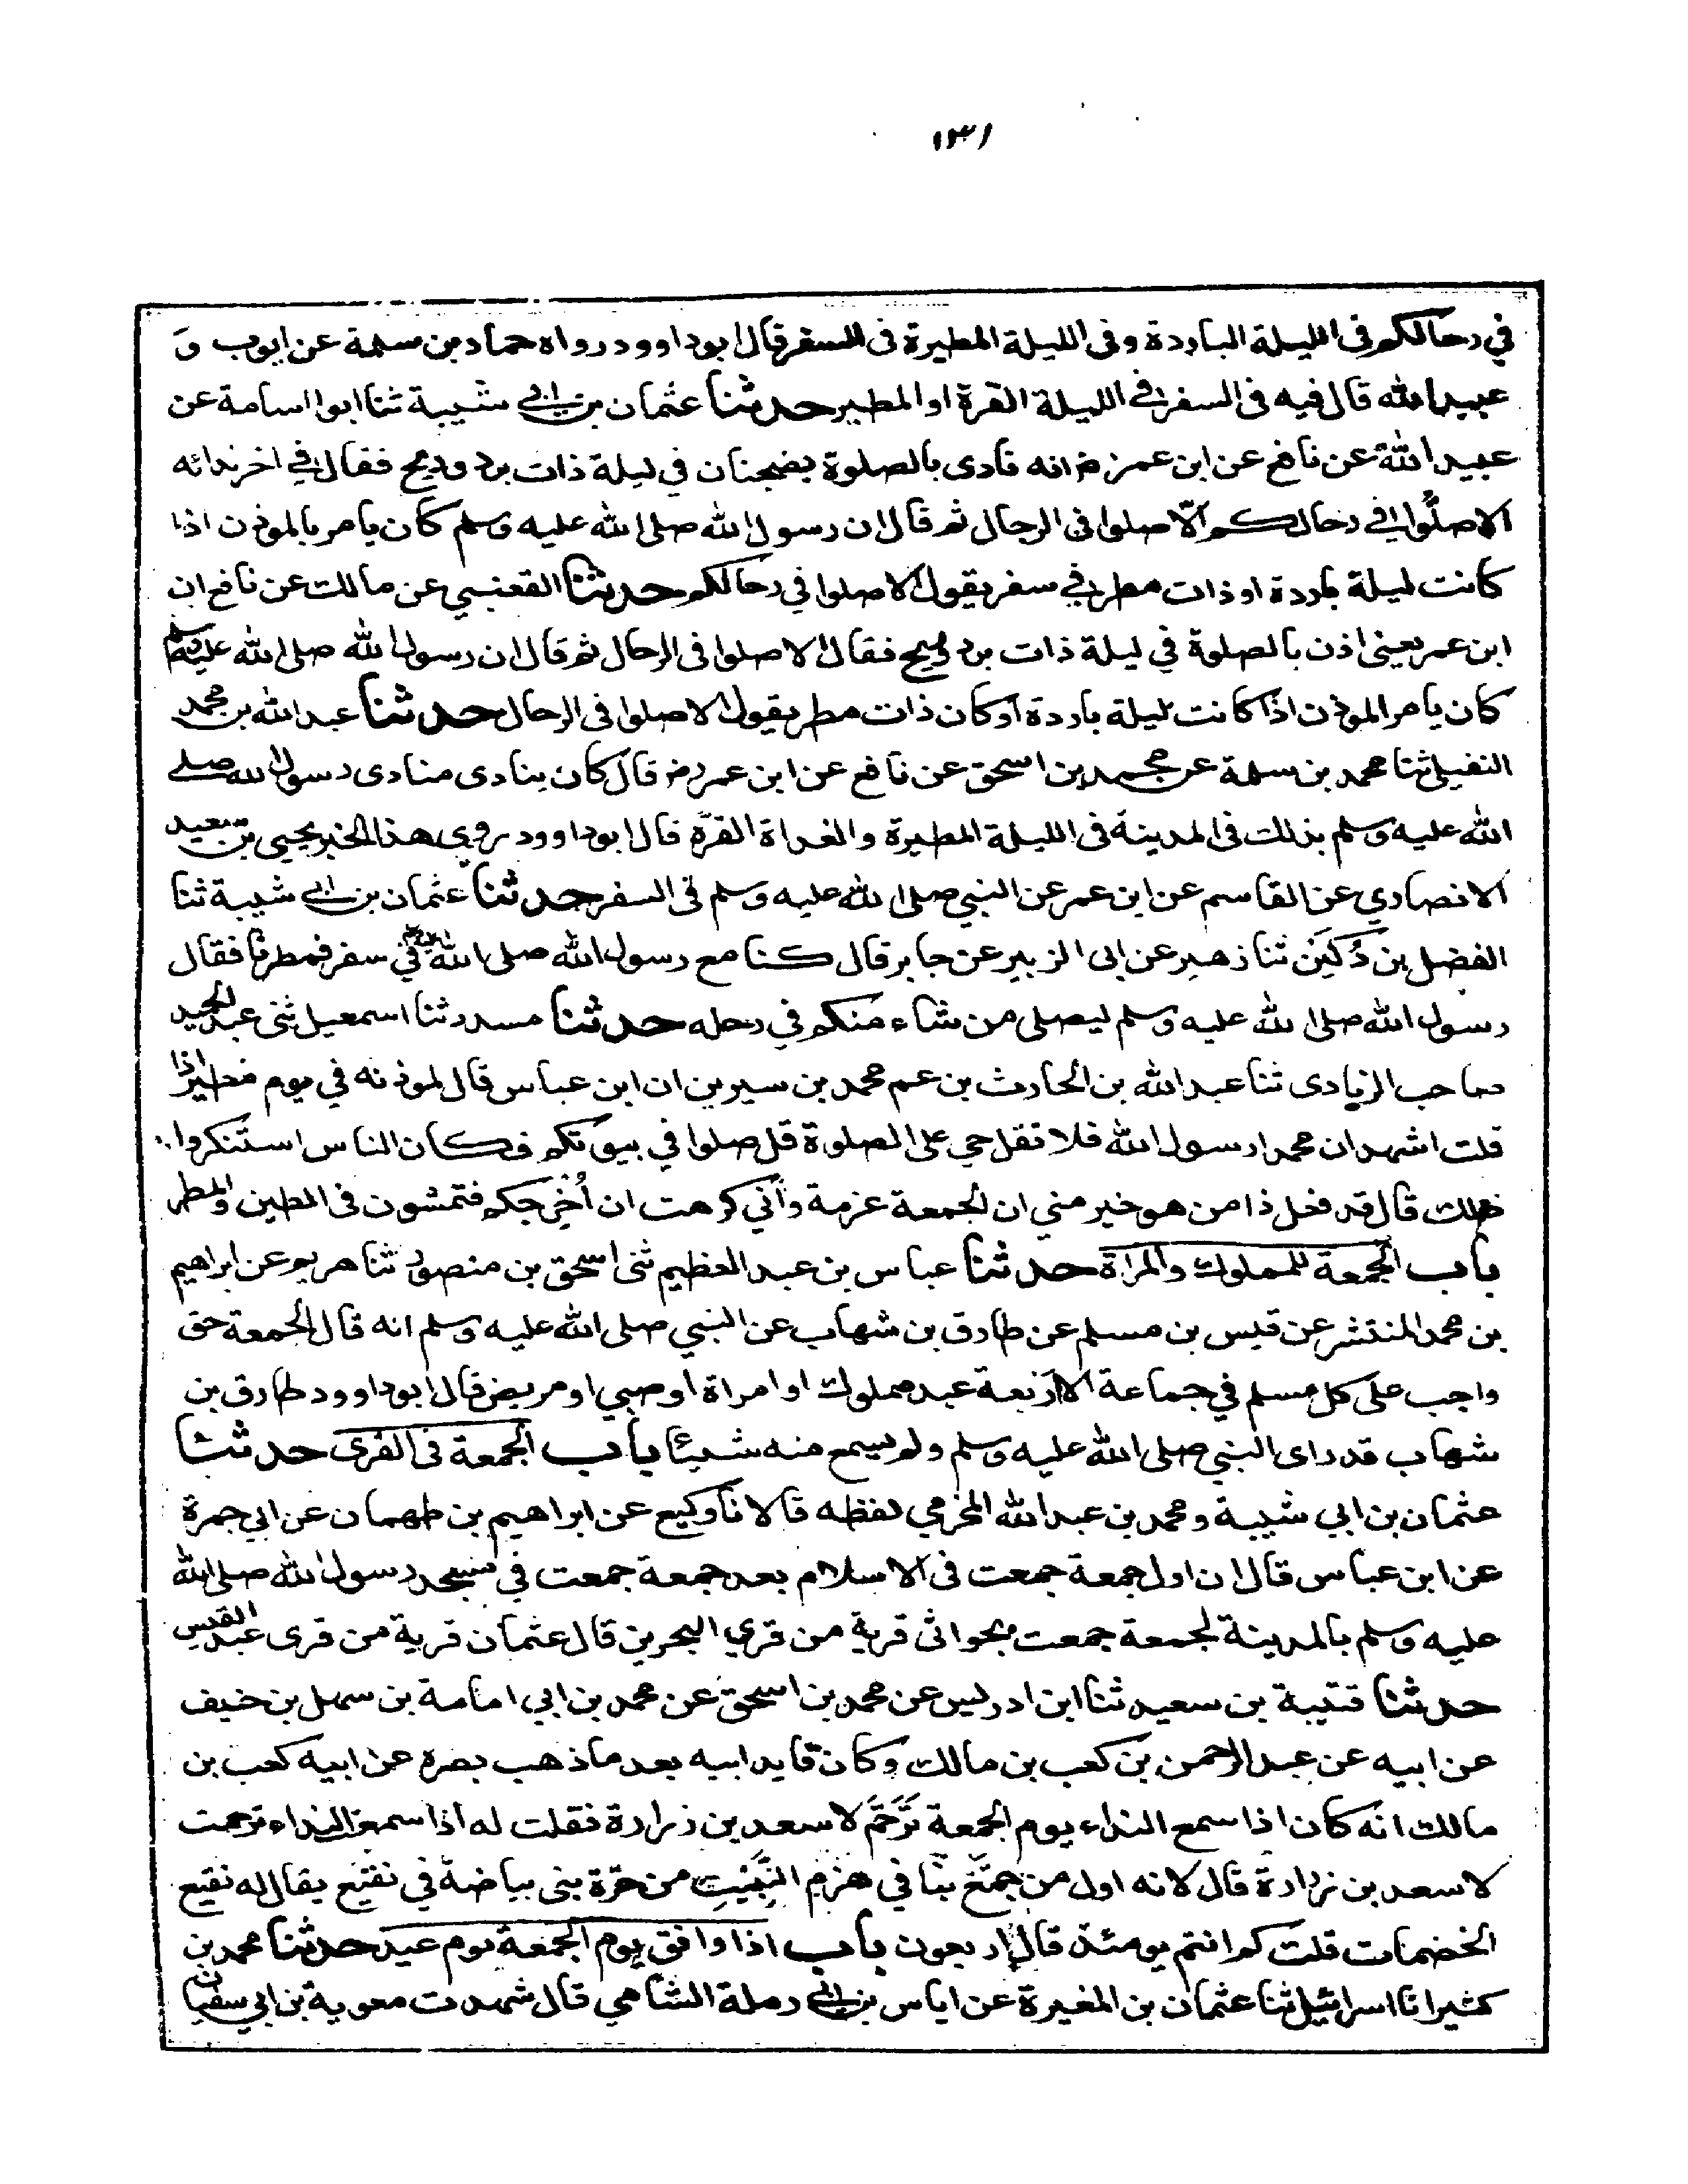 ١٣١
في رحالكم في الليلة الباردة وفى الليلة المطيرة فى السفر قال ابو داوود رواه حماد بن سلمة عن ايوب و
عبيد الله قال فيه فى السفر في الليلة القرة او المطير حدثنا عثمان بن ابي شيبة ثنا ابو اسامة عن
عبيد الله عن نافع عن ابن عمر رض انه نادى بالصلوة بضجنان في ليلة ذات برد وريح فقال في اخر ندائه
الا صلُّوا في رحالكم الا صلوا فى الرحال ثم قال ان رسول الله صلى الله عليه وسلم كان يامر بالموذن اذا
كانت ليلة باردة او ذات مطر في سفر يقول الا صلوا في رحالكم حدثنا القعنبي عن مالك عن نافع ان
ابن عمر يعنى اذن بالصلوة في ليلة ذات برد وريح فقال الا صلوا فى الرحال ثم قال ان رسول الله صلى الله عليه وسلم
كان يامر الموذن اذا كانت ليلة باردة او كان ذات مطر يقول الا صلوا فى الرحال حدثنا عبد الله بن محمد
النفيلي ثنا محمد بن سلمة عن محمد بن اسحق عن نافع عن ابن عمر رض قال كان ينادى منادى رسول الله صلى
الله عليه وسلم بذلك فى المدينة فى الليلة المطيرة والغداة القرة قال ابو داوود روي هذا الخبر يحيى بن سعيد
الانصاري عن القاسم عن ابن عمر عن النبي صلى الله عليه وسلم فى السفر حدثنا عثمان بن ابي شيبة ثنا
الفضل بن دُكَين ثنا زهير عن ابى الزبير عن جابر قال كنا مع رسول الله صلى الله في سفر فمطرنا فقال
رسول الله صلى الله عليه وسلم ليصلى من شاء منكم في رحله حدثنا مسدد ثنا اسمعيل ثنى عبد الحميد
صاحب الزيادى ثنا عبد الله بن الحارث بن عم محمد بن سيرين ان ابن عباس قال لموذنه في يوم مطير اذا
قلت اشهد ان محمدا رسول الله فلا تقل حي على الصلوة قل صلوا في بيوتكم فكان الناس استنكروا
ذلك قال قد فعل ذا من هو خير مني ان الجمعة عزمة واني كرهت ان أُخرجكم فتمشون فى الطين والمطر
باب الجمعة للمملوك والمراة حدثنا عباس بن عبد العظيم ثنى اسحق بن منصور ثنا هريم عن ابراهيم
بن محمد المنتشر عن قيس بن مسلم عن طارق بن شهاب عن النبي صلى الله عليه وسلم انه قال الجمعة حق
واجب على كل مسلم في جماعة الا اربعة عبد مملوك او امراة او صبي او مريض قال ابو داوود طارق بن
شهاب قد راى النبي صلى الله عليه وسلم ولم يسمع منه شيئا باب الجمعة فى القرى حدثنا
عثمان بن ابي شيبة ومحمد بن عبد الله المخرمي لفظه قالا نا وكيع عن ابراهيم بن طهمان عن ابي جمرة
عن ابن عباس قال ان اول جمعة جمعت فى الاسلام بعد جمعة جمعت في مسجد رسول الله صلى الله
عليه وسلم بالمدينة لجمعة جمعت بجواثى قرية من قري البحرين قال عثمان قرية من قرى عبد القيس
حدثنا قتيبة بن سعيد ثنا ابن ادريس عن محمد بن اسحق عن محمد بن ابي امامة بن سهل بن حنيف
عن ابيه عن عبد الرحمن بن كعب بن مالك وكان قايد ابيه بعد ما ذهب بصره عن ابيه كعب بن
مالك انه كان اذا سمع النداء يوم الجمعة تَرَحَّمَ لاسعد بن زرارة فقلت له اذا سمعت النداء ترحمت
لاسعد بن زرارة قال لانه اول من جمّع بنا في هزم النَّبِيت من حرة بنى بياضة في نقيع يقال له نقيع
الخضمات قلت كم انتم يومئذ قال اربعون باب اذا وافق يوم الجمعة يوم عيد حدثنا محمد بن
كثير انا اسرائيل ثنا عثمان بن المغيرة عن اياس بن ابي رملة الشامي قال شهدت معوية بن ابي سفيان